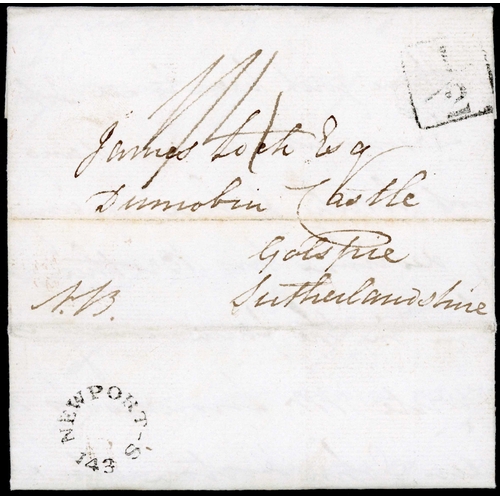 ½
James Loch Esq
Dunrobin Castle
Golspie
Sutherlandshire
N.B.
NEWPORT-S
143